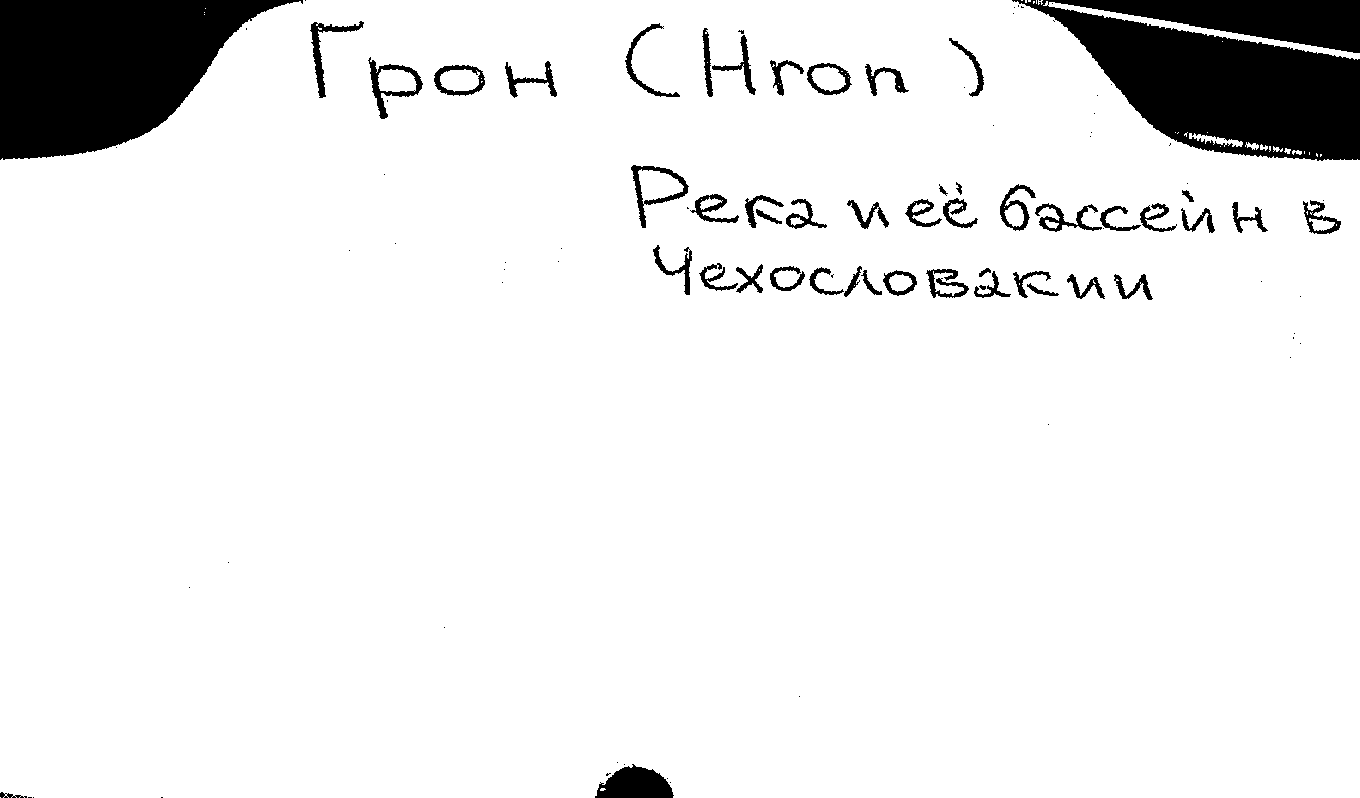 Грон (Hron)
Река и её бассейн в
Чехословакии